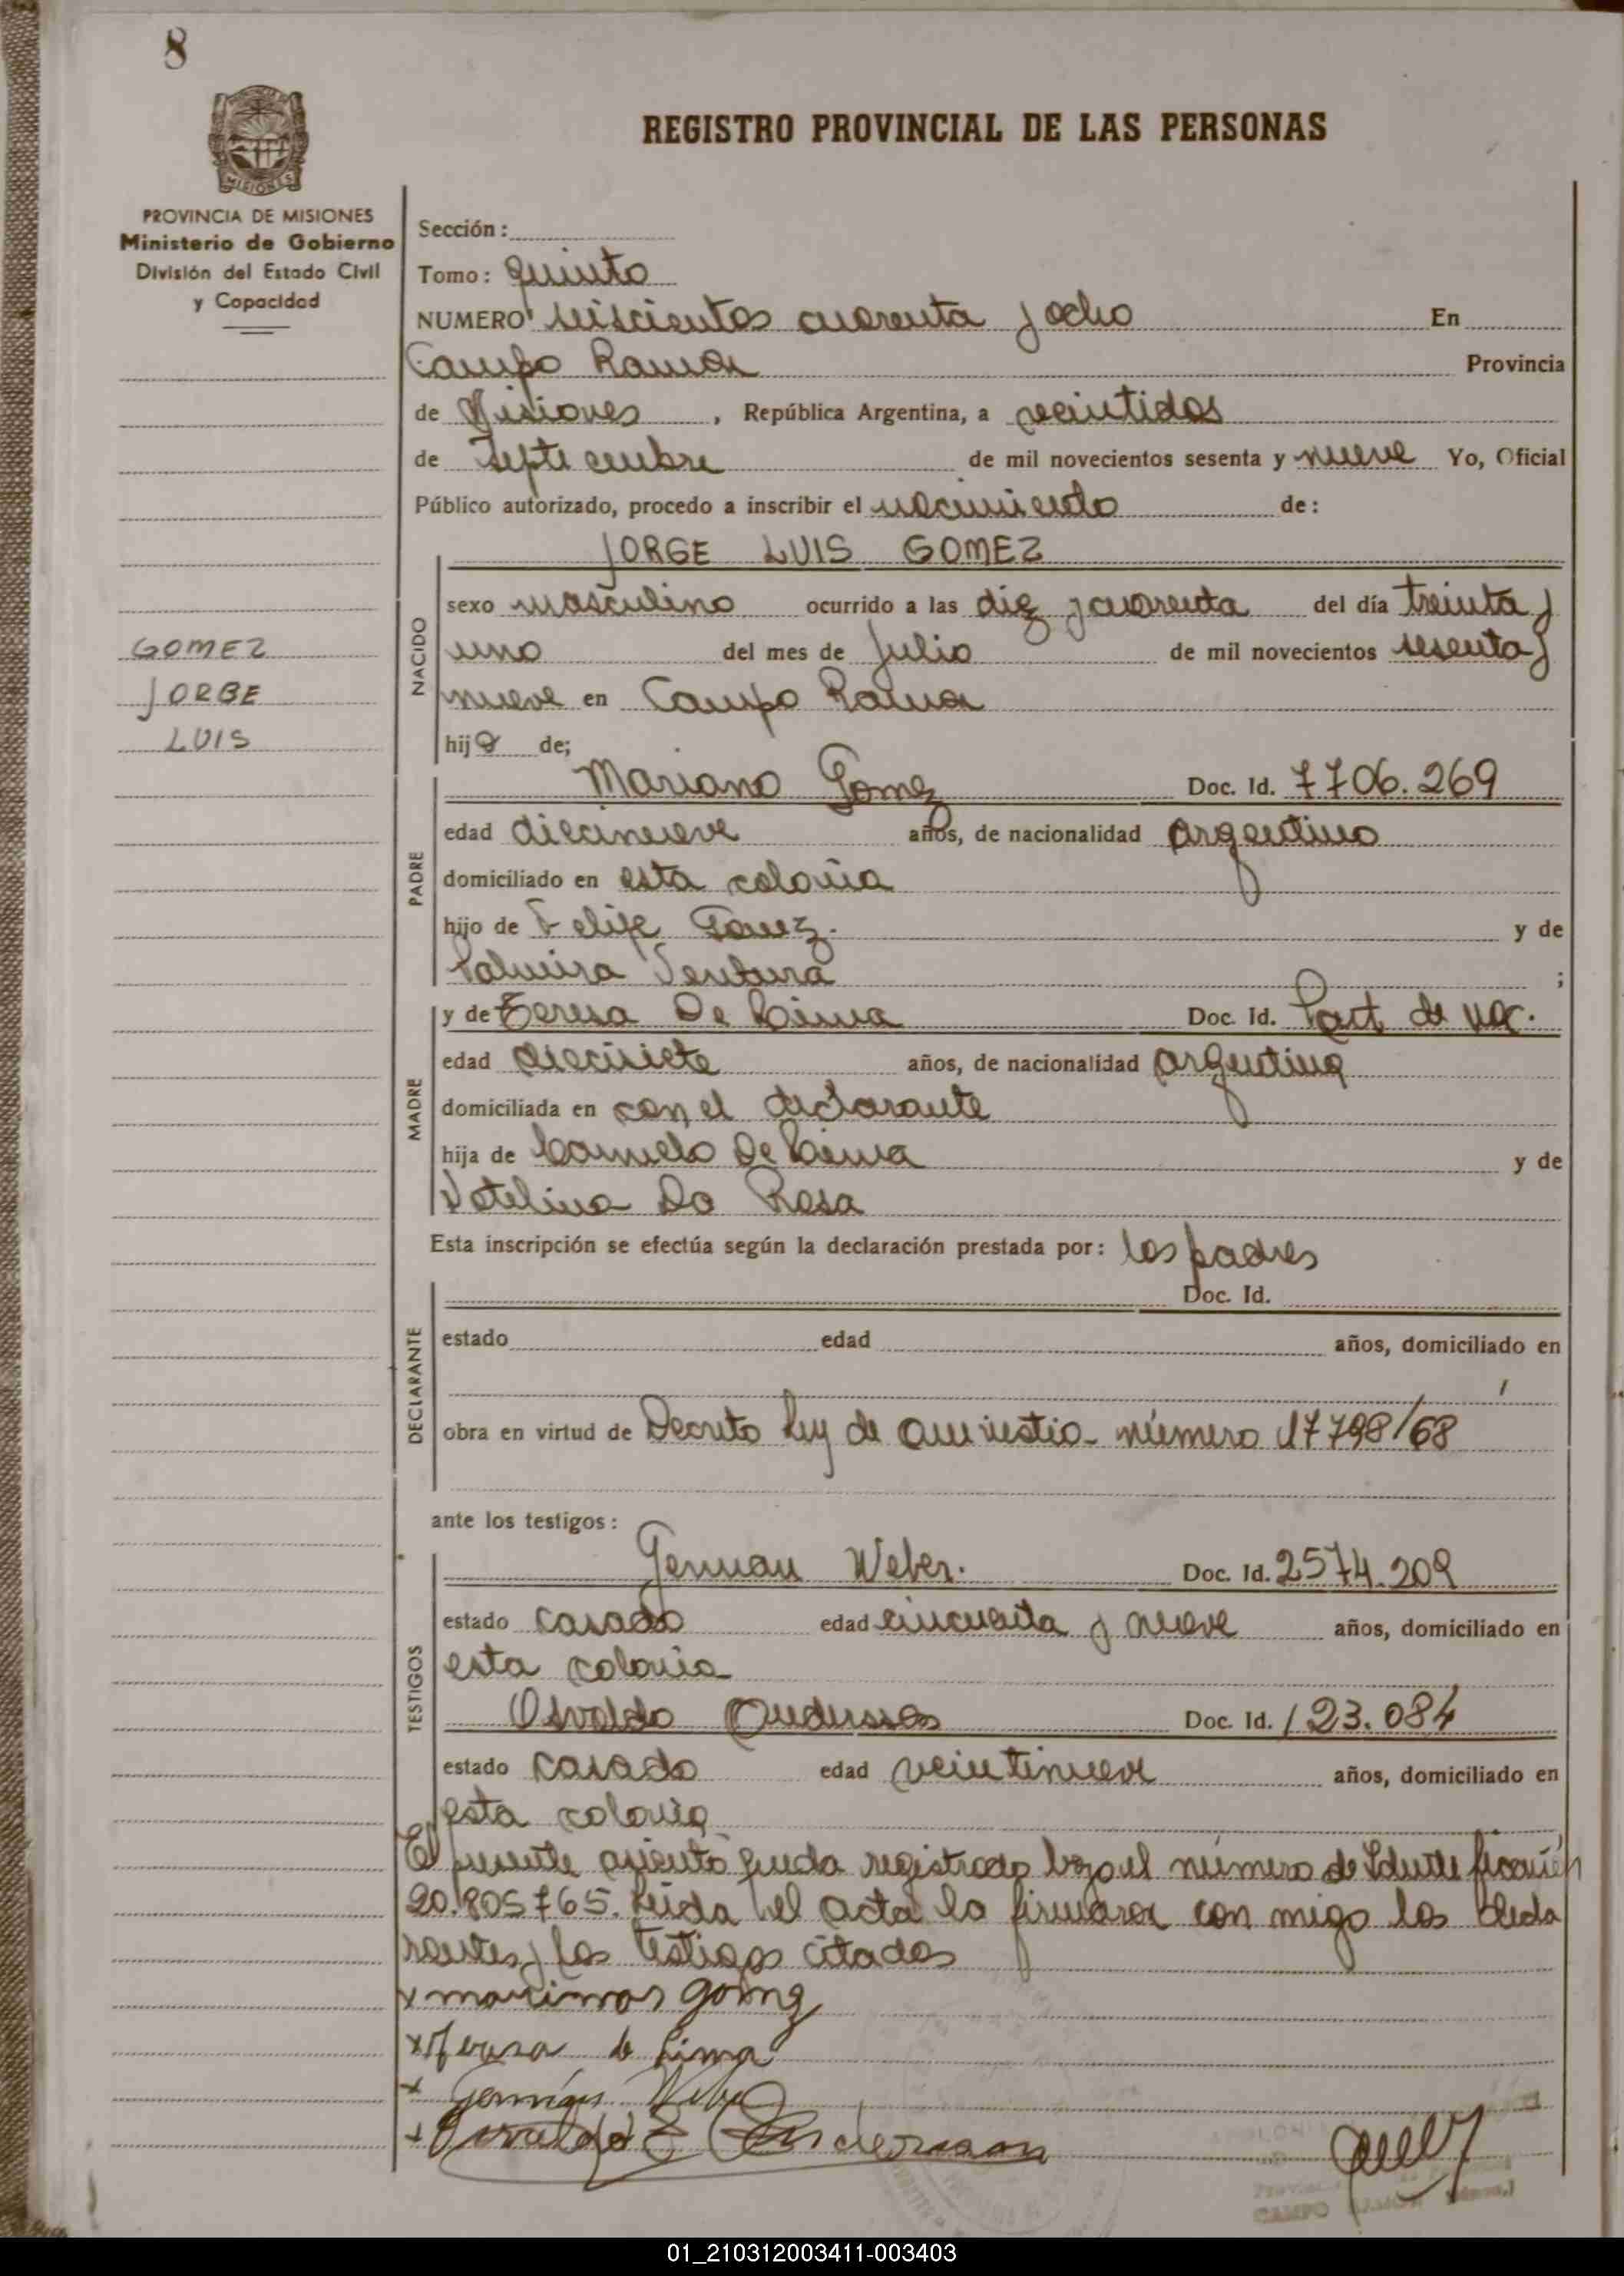 8
REGISTRO PROVINCIAL DE LAS PERSONAS
MISIONES
PROVINCIA DE MISIONES
Ministerio de Gobierno
División del Estado Civil
y Capacidad
GOMEZ
JORGE
LUIS
Sección:
Tomo: quinto
NUMERO seiscientos cuarenta y ocho En
Campo Ramon Provincia
de Misiones, República Argentina, a veintidos
de Septiembre de mil novecientos sesenta y nueve Yo, Oficial
Público autorizado, procedo a inscribir el nacimiento de:
JORGE LUIS GOMEZ
NACIDO
sexo masculino ocurrido a las diez y cuarenta del día treinta y
uno del mes de Julio de mil novecientos sesenta y
nueve en Campo Ramon
hijo de;
PADRE
Mariano Gomez Doc. Id. 7706.269
edad diecinueve años, de nacionalidad argentino
domiciliado en esta colonia
hijo de Felipe Gomez. y de
Palmira Ventura ;
MADRE
y de Teresa De Lima Doc. Id. Part de nac.
edad diecisiete años, de nacionalidad argentina
domiciliada en con el declarante
hija de Carmelo De Lima y de
Da Rosa
Esta inscripción se efectúa según la declaración prestada por: los padres
DECLARANTE
Doc. Id.
estado edad años, domiciliado en
obra en virtud de Decreto Ley de amnistia número 17798/68
ante los testigos:
TESTIGOS
German Weber. Doc. Id. 2574.209
estado casado edad cincuenta y nueve años, domiciliado en
esta colonia
Osvaldo Doc. Id. 123.084
estado casado edad veintinueve años, domiciliado en
esta colonia
El presente asiento queda registrado bajo el número de Identificación
20.805765. Leida el acta la firmaron con migo los decla
rantes y los testigos citados
x gomez
x Teresa de Lima
x German Weber
x Osvaldo E Anderson
CAMPO RAMON
01_210312003411-003403